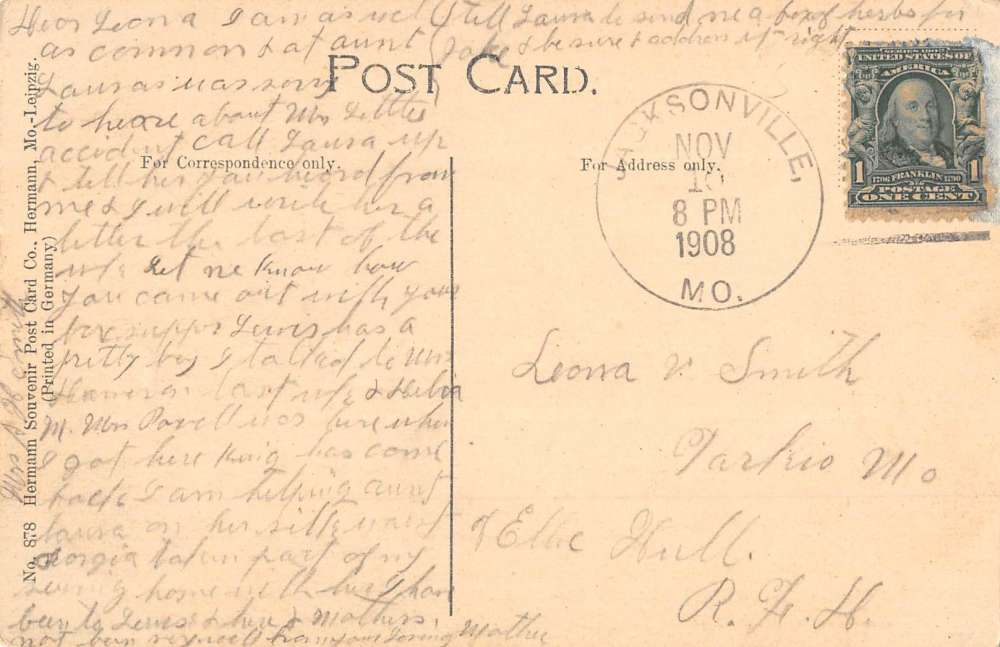 Dear Leona I am as well
as common & at aunt
Lauras was sorry
to heare about Mrs Littles
accident call Laura up
& tell her you heard from
me & I will write her a
letter the last of the
let me know how
you came out with your
box supper Lewis has a
pretty boy I talked to Mrs
last &
M. Mrs Powell was here when
I got here King has come
back I am helping aunt
laura on her silk waist
Georgia taken part of my
sewing home with her I have
been to Lewis & here & Mothers,
not been very well from your loving Mother
tell Laura to send me a box of herbs for
Jake & be sure & address it right
POST CARD.
For Correspondence only.
For Address only.
No. 878 Hermann Souvenir Post Card Co., Hermann, Mo.-Leipzig.
(Printed in Germany)
JACKSONVILLE,
NOV
8 PM
1908
MO.
SERIES 1902
UNITED STATES OF
AMERICA
1 1
1706 FRANKLIN 1790
POSTAGE
ONE CENT
Leona V. Smith
Tarkio Mo
Hull.